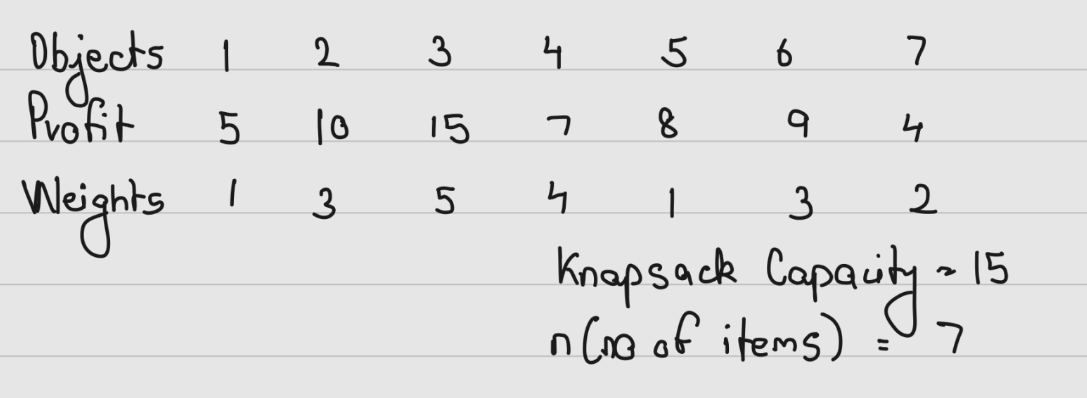 Objects 1 2 3 4 5 6 7
Profit 5 10 15 7 8 9 4
Weights 1 3 5 4 1 3 2
Knapsack Capacity ~ 15
n(no of items) = 7